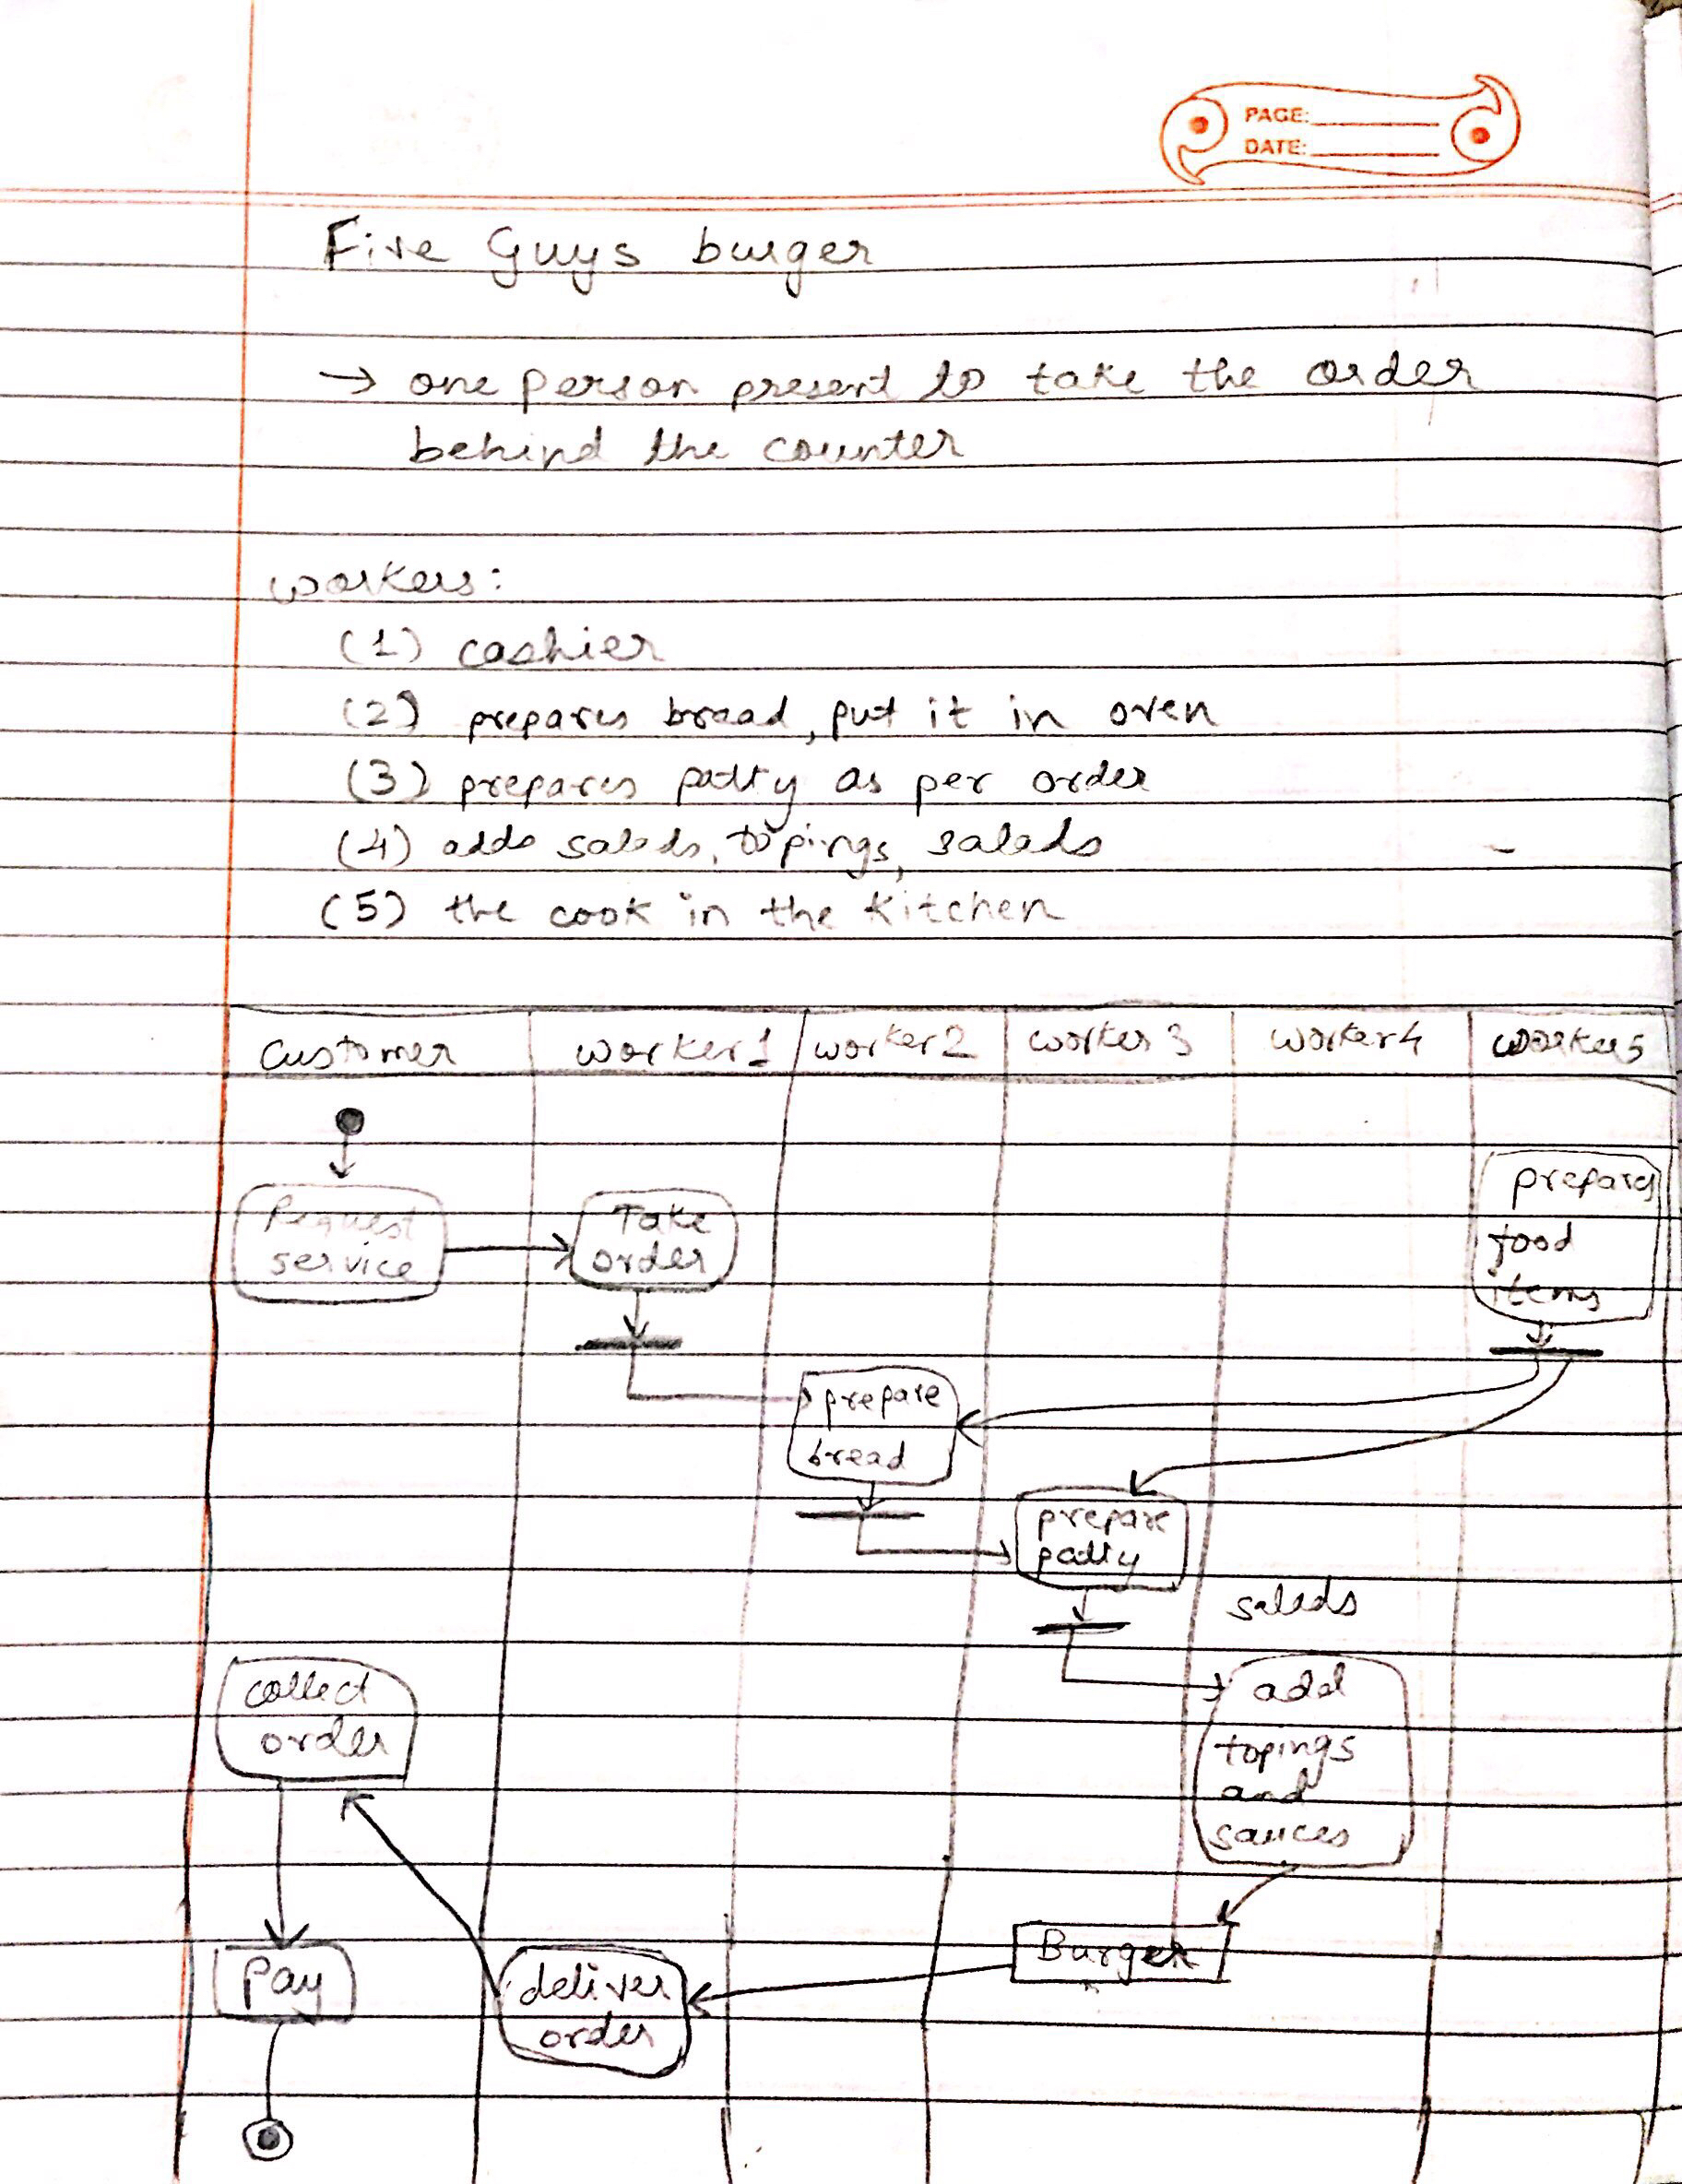 PAGE:
DATE:
Five Guys burger
→ one person present to take the order
behind the counter
workers:
(1) cashier
(2) prepares bread, put it in oven
(3) prepares patty as per order
(4) adds salads, topings, salads
(5) the cook in the kitchen
customer worker1 worker2 worker3 worker4 worker5
Request
service
Take
order
prepares
food
items
prepare
bread
prepare
patty
salads
add
topings
and
sauces
collect
order
Burger
Pay
deliver
order